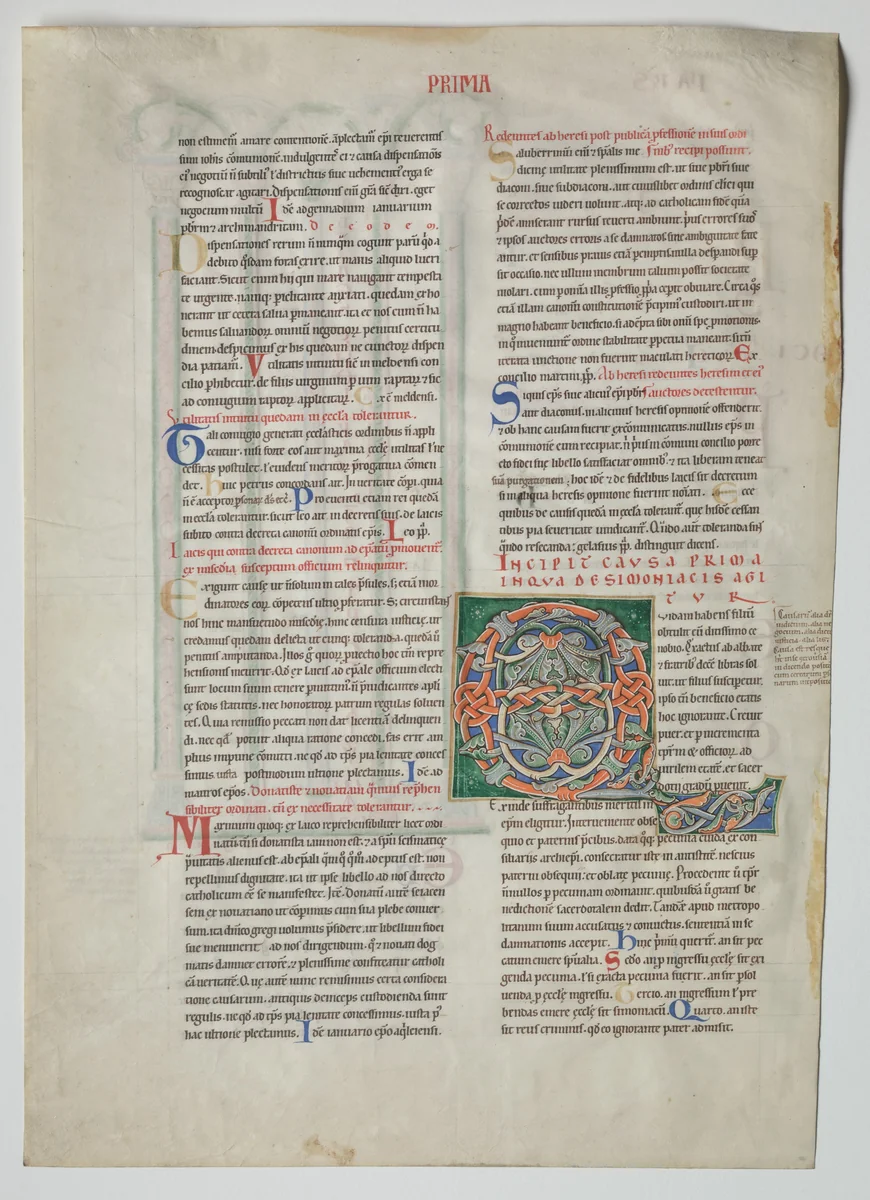 PRIMA
non estinem amare contentione. aplectam epi reuerentis
sum uobis comunione. indulgentes ei & causa dispensationis
ei negotium
recognoscat agitari. Dispensationis
negocium Idē ad gennadium ianuarium
pbrm & archimandritam. De eodem.
Dispensationes rerum nunqm cogunt
debito
faciant. Sicut enim hii qui mare nauigant tempesta
te urgente. nauiq; periclitante quedam exho
nerant ut cetera salua pmaneant. ita et nos cum ha
bemus saluandorum omniū negotiorum penitus certitu
dinem. despicimus ex his quedam ne cunctorum dispen
dia patiam. Vtilitatis intuitu sic in meldensi con
cilio phibetur. de filiis uirginum p uim raptarum & sic
ad coniugium raptorum applicitarum. Ex c meldensi.
Vtilitatis intuitu quedam in eccla tolerantur.
Tali coniugio generati ecclasticis ordinibus n appli
centur. nisi forte eos aut maxima eccle utilitas l ne
cessitas postulet. l euidens meritorum progatiua comen
det. Huic petrus concordans ait. In ueritate copi. quia
n e acceptor psonarum ds. etc. Pro euentu etiam rei quedā
in eccla tolerantur. sicut leo ait in decretis suis. de laicis
subito contra decreta canonū ordinatis epis. Leo pp.
Laicis qui contra decreta canonum ad epatū pmouent.
ex miscdia susceptum officium relinquitur.
Exigunt cause ut n solum in tales psules. s; etiā in or
dinatores eorum copetens ultio pferatur. S; circumstans
nos hinc mansuetudo miscdie. hinc censura iusticie. ut
credamus quedam delicta utcunq; toleranda. quedā u
penitus amputanda. Illos g quorum puectio hoc tm repre
hensionis incurrit. Qd ex laicis ad epale officium electi
sunt locum suum tenere pmittim. n piudicantes apli
ce sedis statutis. nec honorator patrum regulas soluen
tes. Quia remissio peccati non dat licentiā delinquen
di. nec qd potuit aliqua ratione concedi. fas erit am
plius impune comitti. ne qd ad tps pia lenitate conces
simus iusta postmodum ultione plectamus. Idē ad
mauros epos. Donatiste & nouatiani quamuis rephen
sibiliter ordinati. tn ex necessitate tolerantur.
Maximum quoq; ex laico reprehensibiliter licet ordi
natū. tm si donatista iam non est. & a spu scismatice
prauitatis alienus est. ab epali quā quoq; m adeptus est. non
repellimus dignitate. ita ut ipse libello ad nos directo
catholicum ee se manifestet. Ite. Donatū aute
sem ex nouatiano ut copimus cum sua plebe conuer
sum. ita dnico gregi uolumus psidere. ut libellum fidei
sue meminerit ad nos dirigendum. & nouati dog
matis damnet errore. & plenissime confiteatur catholi
cā ueritate. Que aute nunc remisimus certa considera
tione causarum. antiquis deinceps custodienda sunt
regulis. ne qd ad tps pia lenitate concessimus. iusta p
hac ultione plectamus. Idē ianuario epo aqleiensi.
Redeuntes ab heresi post publicā pfessione in suis ordi
Saluberrimū enī & spalis me nib; recipi possunt.
dicine utilitate plenissimum est. ut siue pbri siue
diaconi. siue subdiaconi. aut cuiuslibet ordinis clici qui
se correctos uideri uolunt. atq; ad catholicam fide quā
pdē amiserant rursus reuerti ambiunt. prius errores suos
& ipsos auctores erroris a se damnatos. sine ambiguitate fate
antur. et sensibus prauis etiā peremptis nulla desperandi sup
sit occasio. nec ullum membrum talium possit societate
uiolari. cum p omnia illis pfessio ppria ceperit obuiare. Circa quos
etiā illam canonū constitutione pcipimus custodiri. ut in
magno habeant beneficio. si adepta sibi omni spe pmotionis.
in quo inueniuntur ordine stabilitate ppetua maneant. si tn
iterata tinctione non fuerint maculati hereticorum. Ex
concilio martini pp. Ab heresi redeuntes heresim et ei
Siquis eps siue alicui epi pbr auctores detestentur.
aut diaconus. in alicuius heresis opinione offenderit.
& ob hanc causam fuerit excomunicatus. nullus eps in
comunione eum recipiat. n prius in comuni concilio porre
cto fidei sue libello satisfaciat omnib; & ita liberam teneat
suā purgationem. hoc idē & de fidelibus laicis sit decretum
si in aliqua heresis opinione fuerint notati. Ecce
quibus de causis quedā in eccla tolerant. que hisde cessan
tibus pia seueritate uindicant. Quando aut toleranda sint
quando resecanda. gelasius pp. distinguit dicens.
INCIPIT CAVSA PRIMA
IN QVA DE SIMONIACIS AGI
TVR.
Quidam habens filiū
obtulit eū ditissimo ce
nobio. Exactus ab abbate
& fratrib; decē libras sol
uit. ut filius susciperetur.
ipso tn beneficio etatis
hoc ignorante. Creuit
puer. et p incrementa
tpr m & officiorum ad
uirilem etate. et sacer
dotii gradū puenit.
Exinde suffragantibus meritis in
epm eligitur. Interueniente obse
quio et paternis pcibus. data quoq; pecunia cuidā ex con
siliariis archiepi. consecratur iste in antistite. nescius
paterni obsequii. et oblate pecunie. Procedente u tpr
n nullos p pecuniam ordinauit. quibusdā u gratis be
nedictione sacerdotalem dedit. Tandē apud metropo
litanum suum accusatus & conuictus. sententiā in se
damnationis accepit. Hinc primū querit. an sit pec
catum emere spiritualia. Sedo. an p ingressu eccle sit exi
genda pecunia. l si exacta pecunia fuerit. an sit psol
uenda. p eccle ingressu. Tercio. an ingressum l pre
bendas emere eccle sit simoniacū. Quarto. an iste
sit reus criminis. qd eo ignorante pater admisit.
Causarū alia